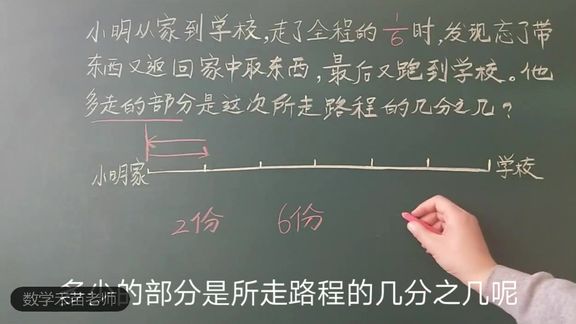 小明从家到学校,走了全程的1/6时,发现忘了带
东西又返回家中取东西,最后又跑到学校。他
多走的部分是这次所走路程的几分之几?
小明家
学校
2份
6份
多少的部分是所走路程的几分之几呢
数学禾苗老师